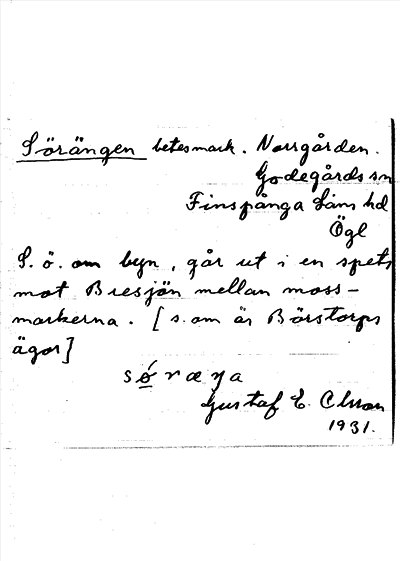 Sörängen betesmark. Norrgården.
Godegårds sn
Finspånga läns hd
Ögl
S. ö. om byn, går ut i en spets
mot Bresjön mellan moss-
markerna. [s. om är Börstorps
ägor]
sǿræŋa
Gustaf E. Olsson
1931.